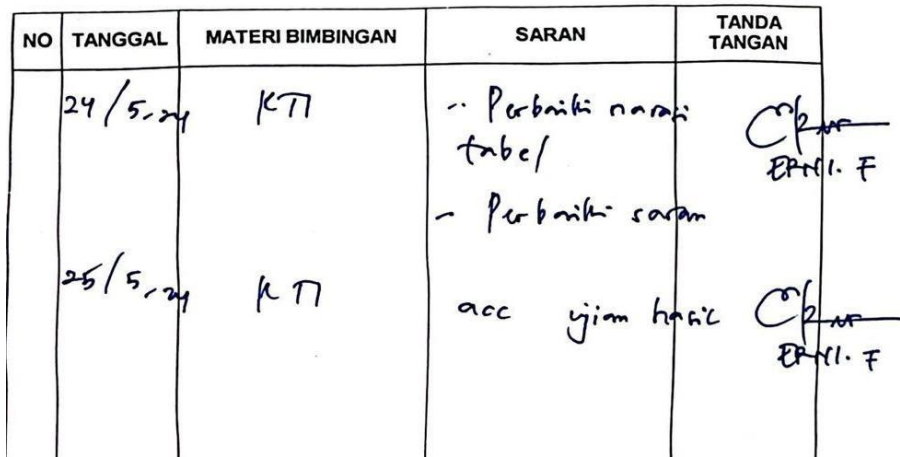 NO TANGGAL MATERI BIMBINGAN SARAN TANDA TANGAN
24/5-24 KTI - Perbaiki narasi
tabel
ERNI. F
- Perbaiki saran
25/5-24 KTI acc ujian hasil
ERNI. F